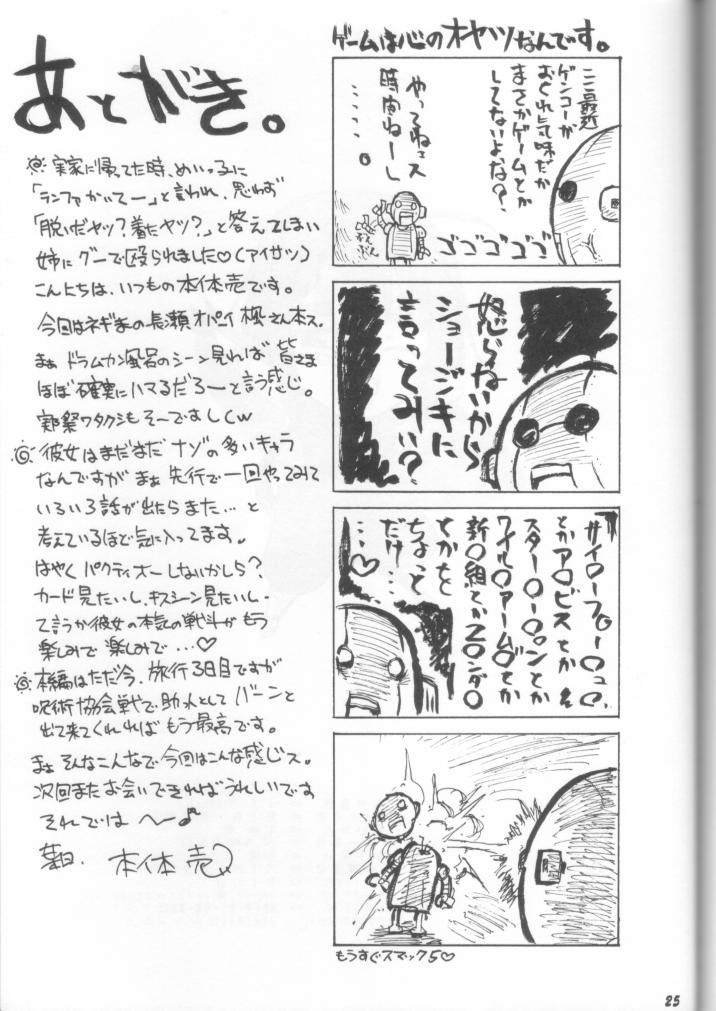 あとがき。
実家に帰ってた時、めいっ子に
「ランファかいてー」と言われ、思わず
「脱いだヤツ?着たヤツ?」と答えてしまい
姉にグーで殴られました♡(アイサツ)
こんにちは、いつもの本体売です。
今回はネギまの長瀬オパイ楓さん本ス。
まぁ ドラムカン風呂のシーン見れば 皆さま
ほぼ確実にハマるだろーと言う感じ。
実際ワタクシもそーですしw
彼女はまだまだ ナゾの多いキャラ
なんですが まぁ 先行で一回やってみて
いろいろ話が出たらまた…と
考えているほど気に入ってます。
はやく パクティオーしないかしら?
カード見たいし、キスシーン見たいし、
て言うか彼女の本気の戦斗がもう
楽しみで楽しみで…♡
本編はただ今、旅行3日目ですが
呪術協会戦で助っ人として バーンと
出て来てくれればもう最高です。
まぁ そんなこんなで今回はこんな感じス。
次回またお会いできればうれしいです
それでは へー♪
本体 売
ゲームは心のオヤツなんです。
ここ最近
ゲンコーが
おくれ気味だが
まさかゲームとか
してないよな?
やってねェス
時間ねーし
……。
ゴゴゴゴゴ
怒らないから
ショージキに
言ってみい?
サイ○ーフ○ー○ュ○、
とかア○ビスとか
スター○ー○ンとか
ワイル○アーム○とか
新○組とかZ○ンダ○
とかをと
ちょっと
だけ…
…♡
もうすぐスマック5♡
25